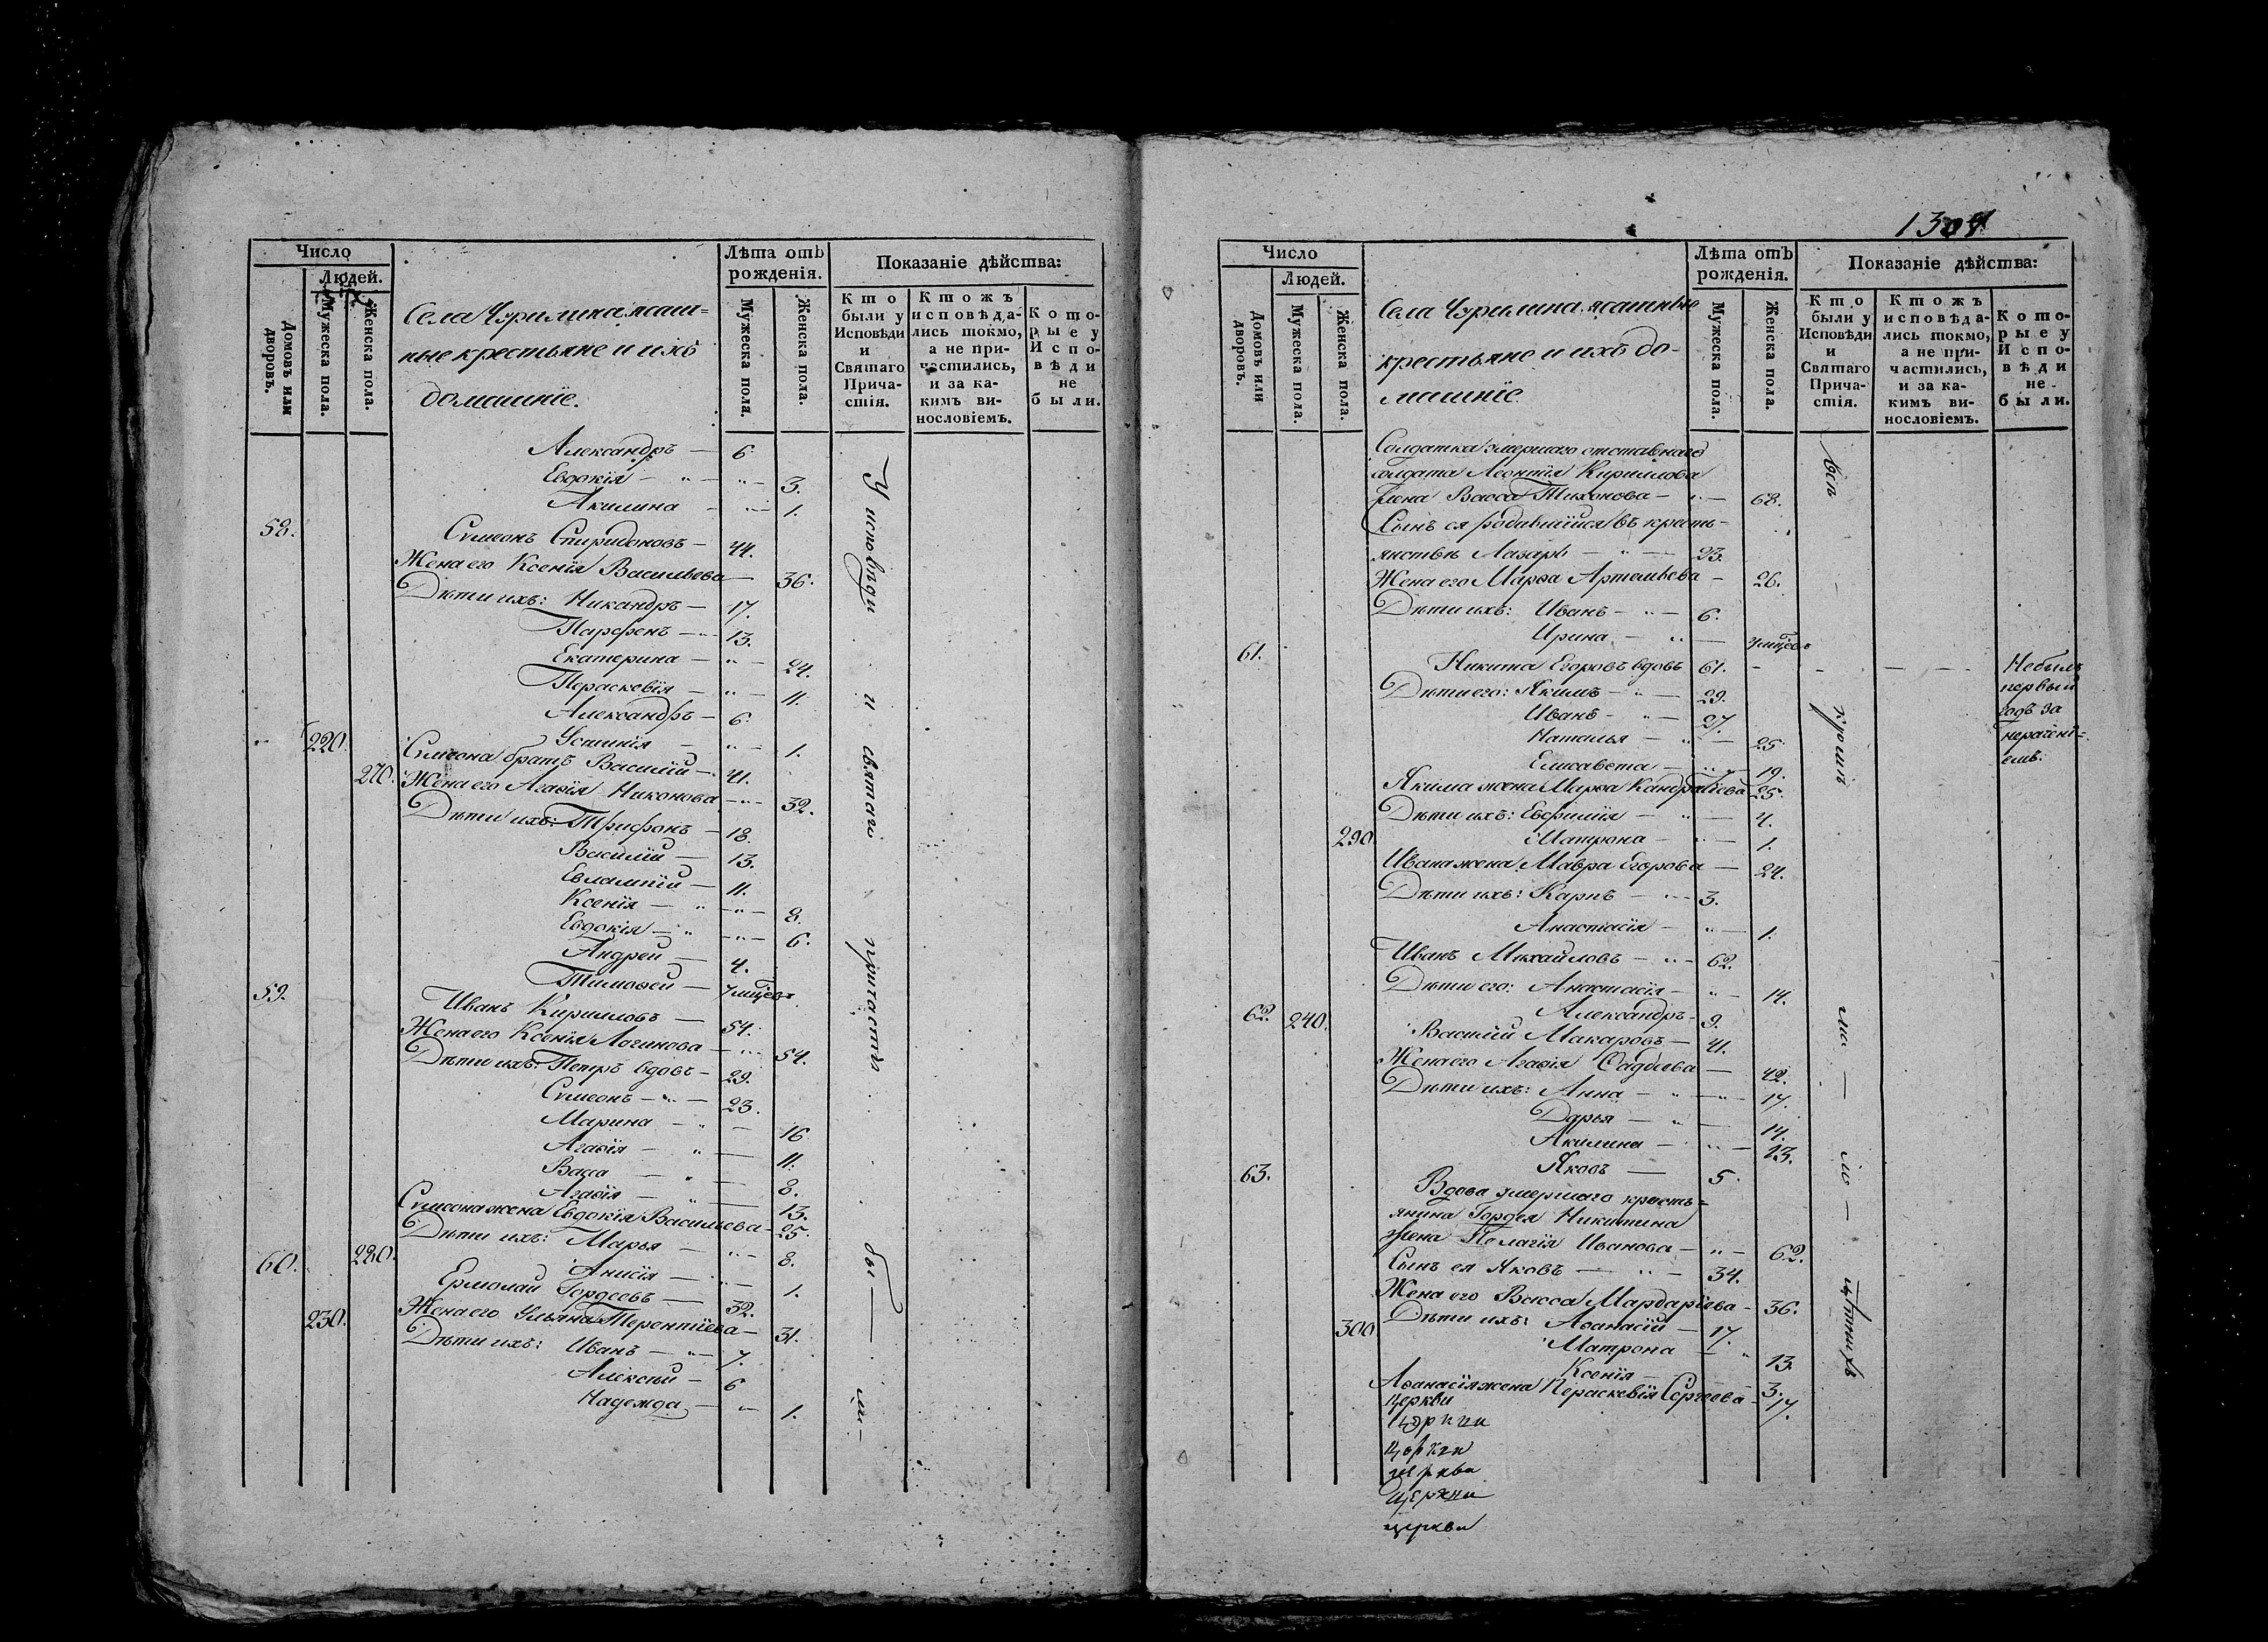 Число
Людей.
Домовъ или дворовъ.
Мужеска пола.
Женска пола.
Села Чурилина ясаш=
ные крестьяне и ихъ
домашніе.
Лѣта отъ рожденія.
Мужеска пола.
Женска пола.
Показаніе дѣйства:
Кто были у Исповѣди и Святаго Причастія.
Ктожъ исповѣдались токмо, а не причастились, и за какимъ винословіемъ.
Которые у Исповѣди не были.
Александръ — 6.
Евдокія — 3.
Акилина — 1.
58. Сѵмеонъ Спиридоновъ — 44.
Жена его Ксенія Васильева — 36.
Дѣти ихъ: Никандръ — 17.
Парфенъ — 13.
Екатерина — 24.
Параскевія — 11.
Александръ — 6.
220. Устинія — 1.
Сѵмеона братъ Василій — 41.
270. Жена его Агафія Никонова — 32.
Дѣти ихъ: Трифонъ — 18.
Василій — 13.
Евлампій — 11.
Ксенія — 8.
Евдокія — 6.
Андрей — 4.
Тимофей —
59. Иванъ Кирилловъ — 54.
Жена его Ксенія Логинова — 54.
Дѣти ихъ: Петръ вдовъ — 29.
Сѵмеонъ — 23.
Марина — 16
Агафія — 11.
Васса — 8.
Агафія — 13.
Сѵмеона жена Евдокія Васильева — 25.
Дѣти ихъ: Марья — 8.
280. Анисія — 1.
60. Ермолай Гордеевъ — 32.
230. Жена его Ульяна Терентіева — 31.
Дѣти ихъ: Иванъ — 7.
Алексѣй — 6
Надежда — 1.
У исповѣди и святаго причастія бы — ли —
1304
Число
Людей.
Домовъ или дворовъ.
Мужеска пола.
Женска пола.
Села Чурилина ясашные
крестьяне и ихъ до-
машніе
Лѣта отъ рожденія.
Мужеска пола.
Женска пола.
Показаніе дѣйства:
Кто были у Исповѣди и Святаго Причастія.
Ктожъ исповѣдались токмо, а не причастились, и за какимъ винословіемъ.
Которые у Исповѣди не были.
Солдатка умершаго отставнаго
солдата Леонтія Кириллова
жена Васса Тихонова — 68.
Сынъ ея родавшійся въ кресть-
янствѣ Лазарь — 23.
Жена его Марфа Артемьева — 26.
Дѣти ихъ: Иванъ — 6.
Ирина —
61. Никита Егоровъ вдовъ 61. — Небылъ
первый
годъ за
нерачені=
емъ.
Дѣти его: Якимъ — 29.
Иванъ — 27.
Наталья — 25.
Елисавета — 19.
Якима жена Марфа Кандратіева 25.
Дѣти ихъ: Евфимія — 4.
290. Матрона — 1.
Ивана жена Мавра Егорова — 24.
Дѣти ихъ: Карпъ — 3.
Анастасія — 1.
Иванъ Михайловъ — 62.
Дѣти его: Анастасія — 14.
Александръ — 9.
62. 240. Василій Макаровъ — 41.
Жена его Агафія Фадѣева — 42.
Дѣти ихъ: Анна — 17.
Дарья — 14.
Акилина — 13.
Яковъ — 5.
63. Вдова умершаго кресть=
янина Гордея Никитина
жена Пелагія Иванова — 62.
Сынъ ея Яковъ — 34.
Жена его Васса Мардаріева — 36.
300 Дѣти ихъ: Афанасій — 17.
Матрона — 13.
Ксенія — 3.
Афанасія жена Параскевія Сергеева — 17.
Церкви
церкви
церкви
церкви
церкви
церкви
Всѣ кромѣ